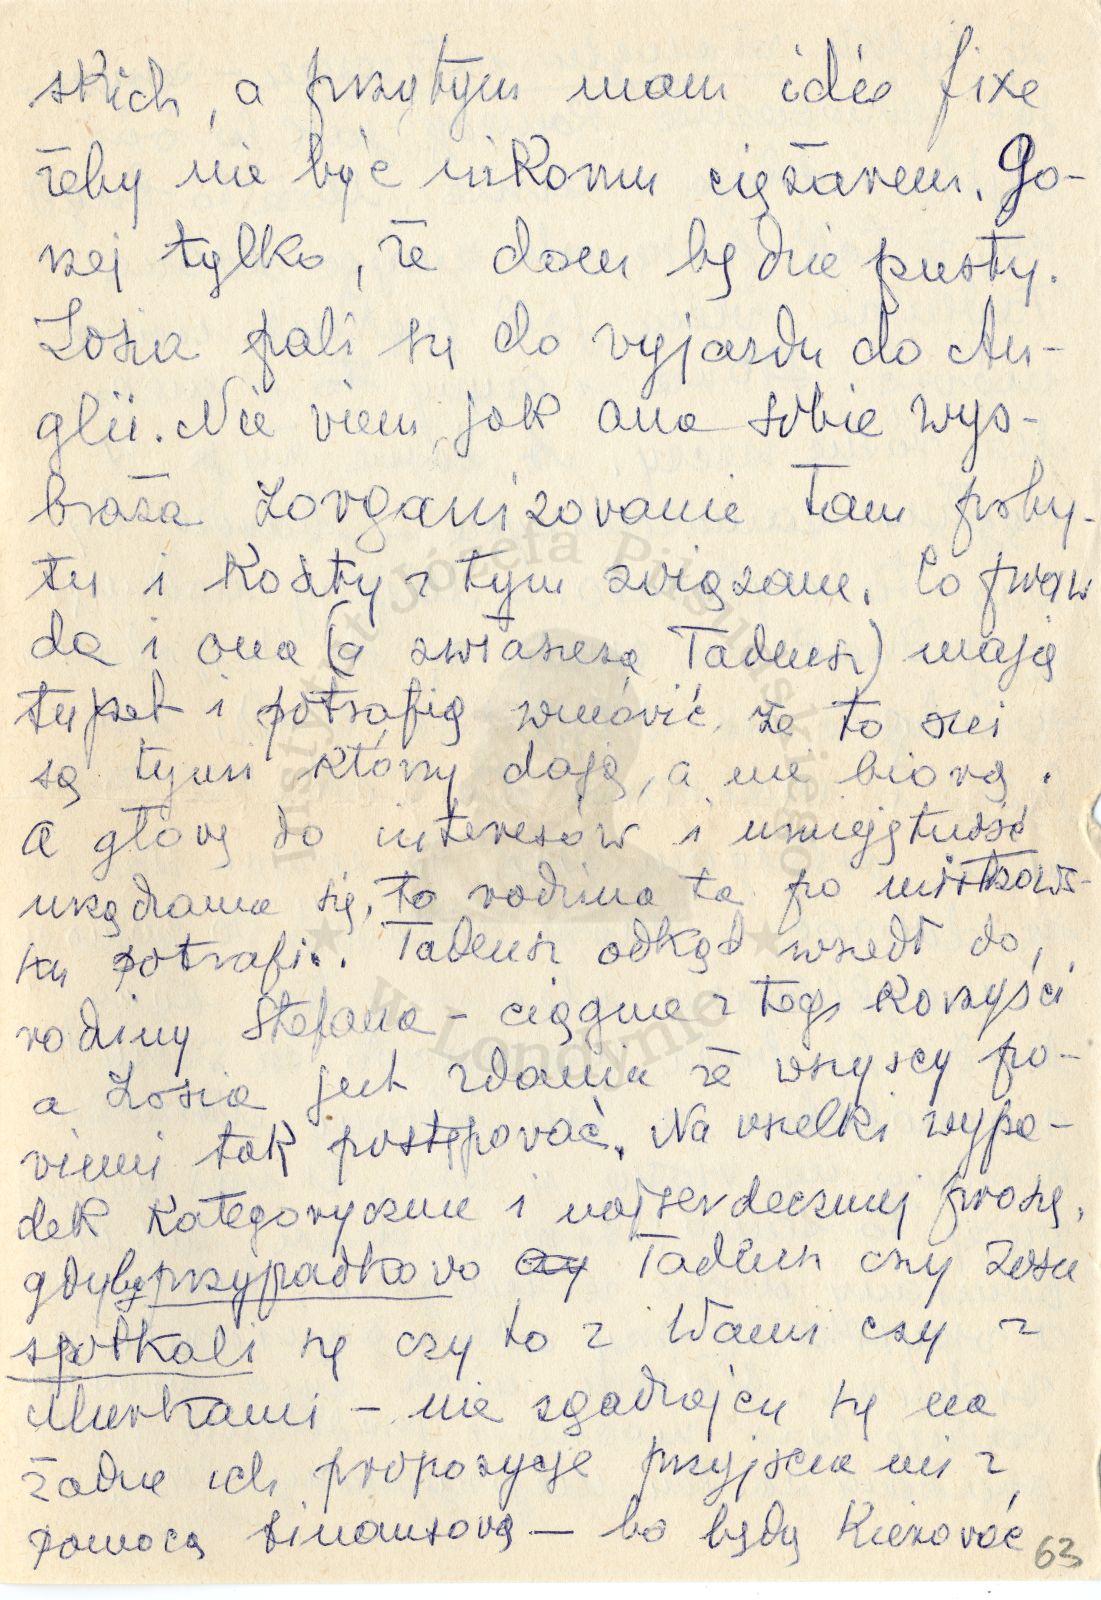 skich, a przytym mam idée fixe
żeby nie być nikomu ciężarem. Go-
rzej tylko, że dom będzie pusty.
Zosia pali się do vyjazdu do An-
glii. Nie viem jak ona sobie wyo-
braża zorganizovanie tam poby-
tu i koszty z tym związane. Co praw
da i ona (a zwłaszcza Tadeusz) mają
tupet i potrafią wmóvić że to oni
są tymi którzy dają, a nie biorą.
A głovę do interesów i umiejętność
urządzania się, to rodzina ta po mistrzows-
ku potrafi. Tadeusz odkąd wszedł do
rodziny Stefana - ciągnie z tego korzyści
a Zosia jest zdania że wszyscy po-
vinni tak postępovać. Na vszelki wypa-
dek kategorycznie i najserdeczniej proszę,
gdyby przypadkovo czy Tadeusz czy Zosia
spotkali się czy to z Wami czy z
Murkami - nie zgadzajcie się na
żadne ich propozycje przyjścia mi z
pomocą finansovą - bo będą kierovać
63
Instytut Józefa Piłsudskiego
w Londynie